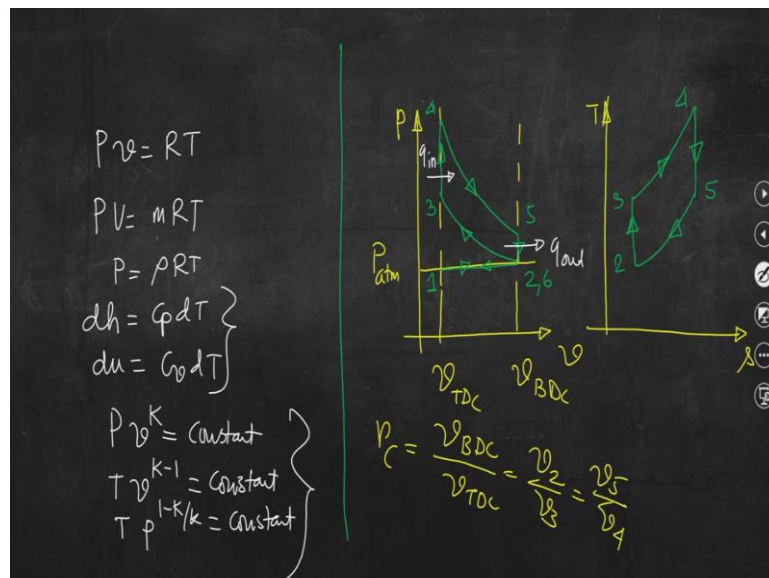 Pv = RT
PV = mRT
P = ρRT
dh = CpdT
du = CvdT
Pv^K = Constant
Tv^(K-1) = Constant
TP^(1-K/K) = Constant
P
4
qin
3
5
qout
Patm
1
2,6
v
vTDC
vBDC
T
4
3
5
2
s
rc = vBDC/vTDC = v2/v3 = v5/v4